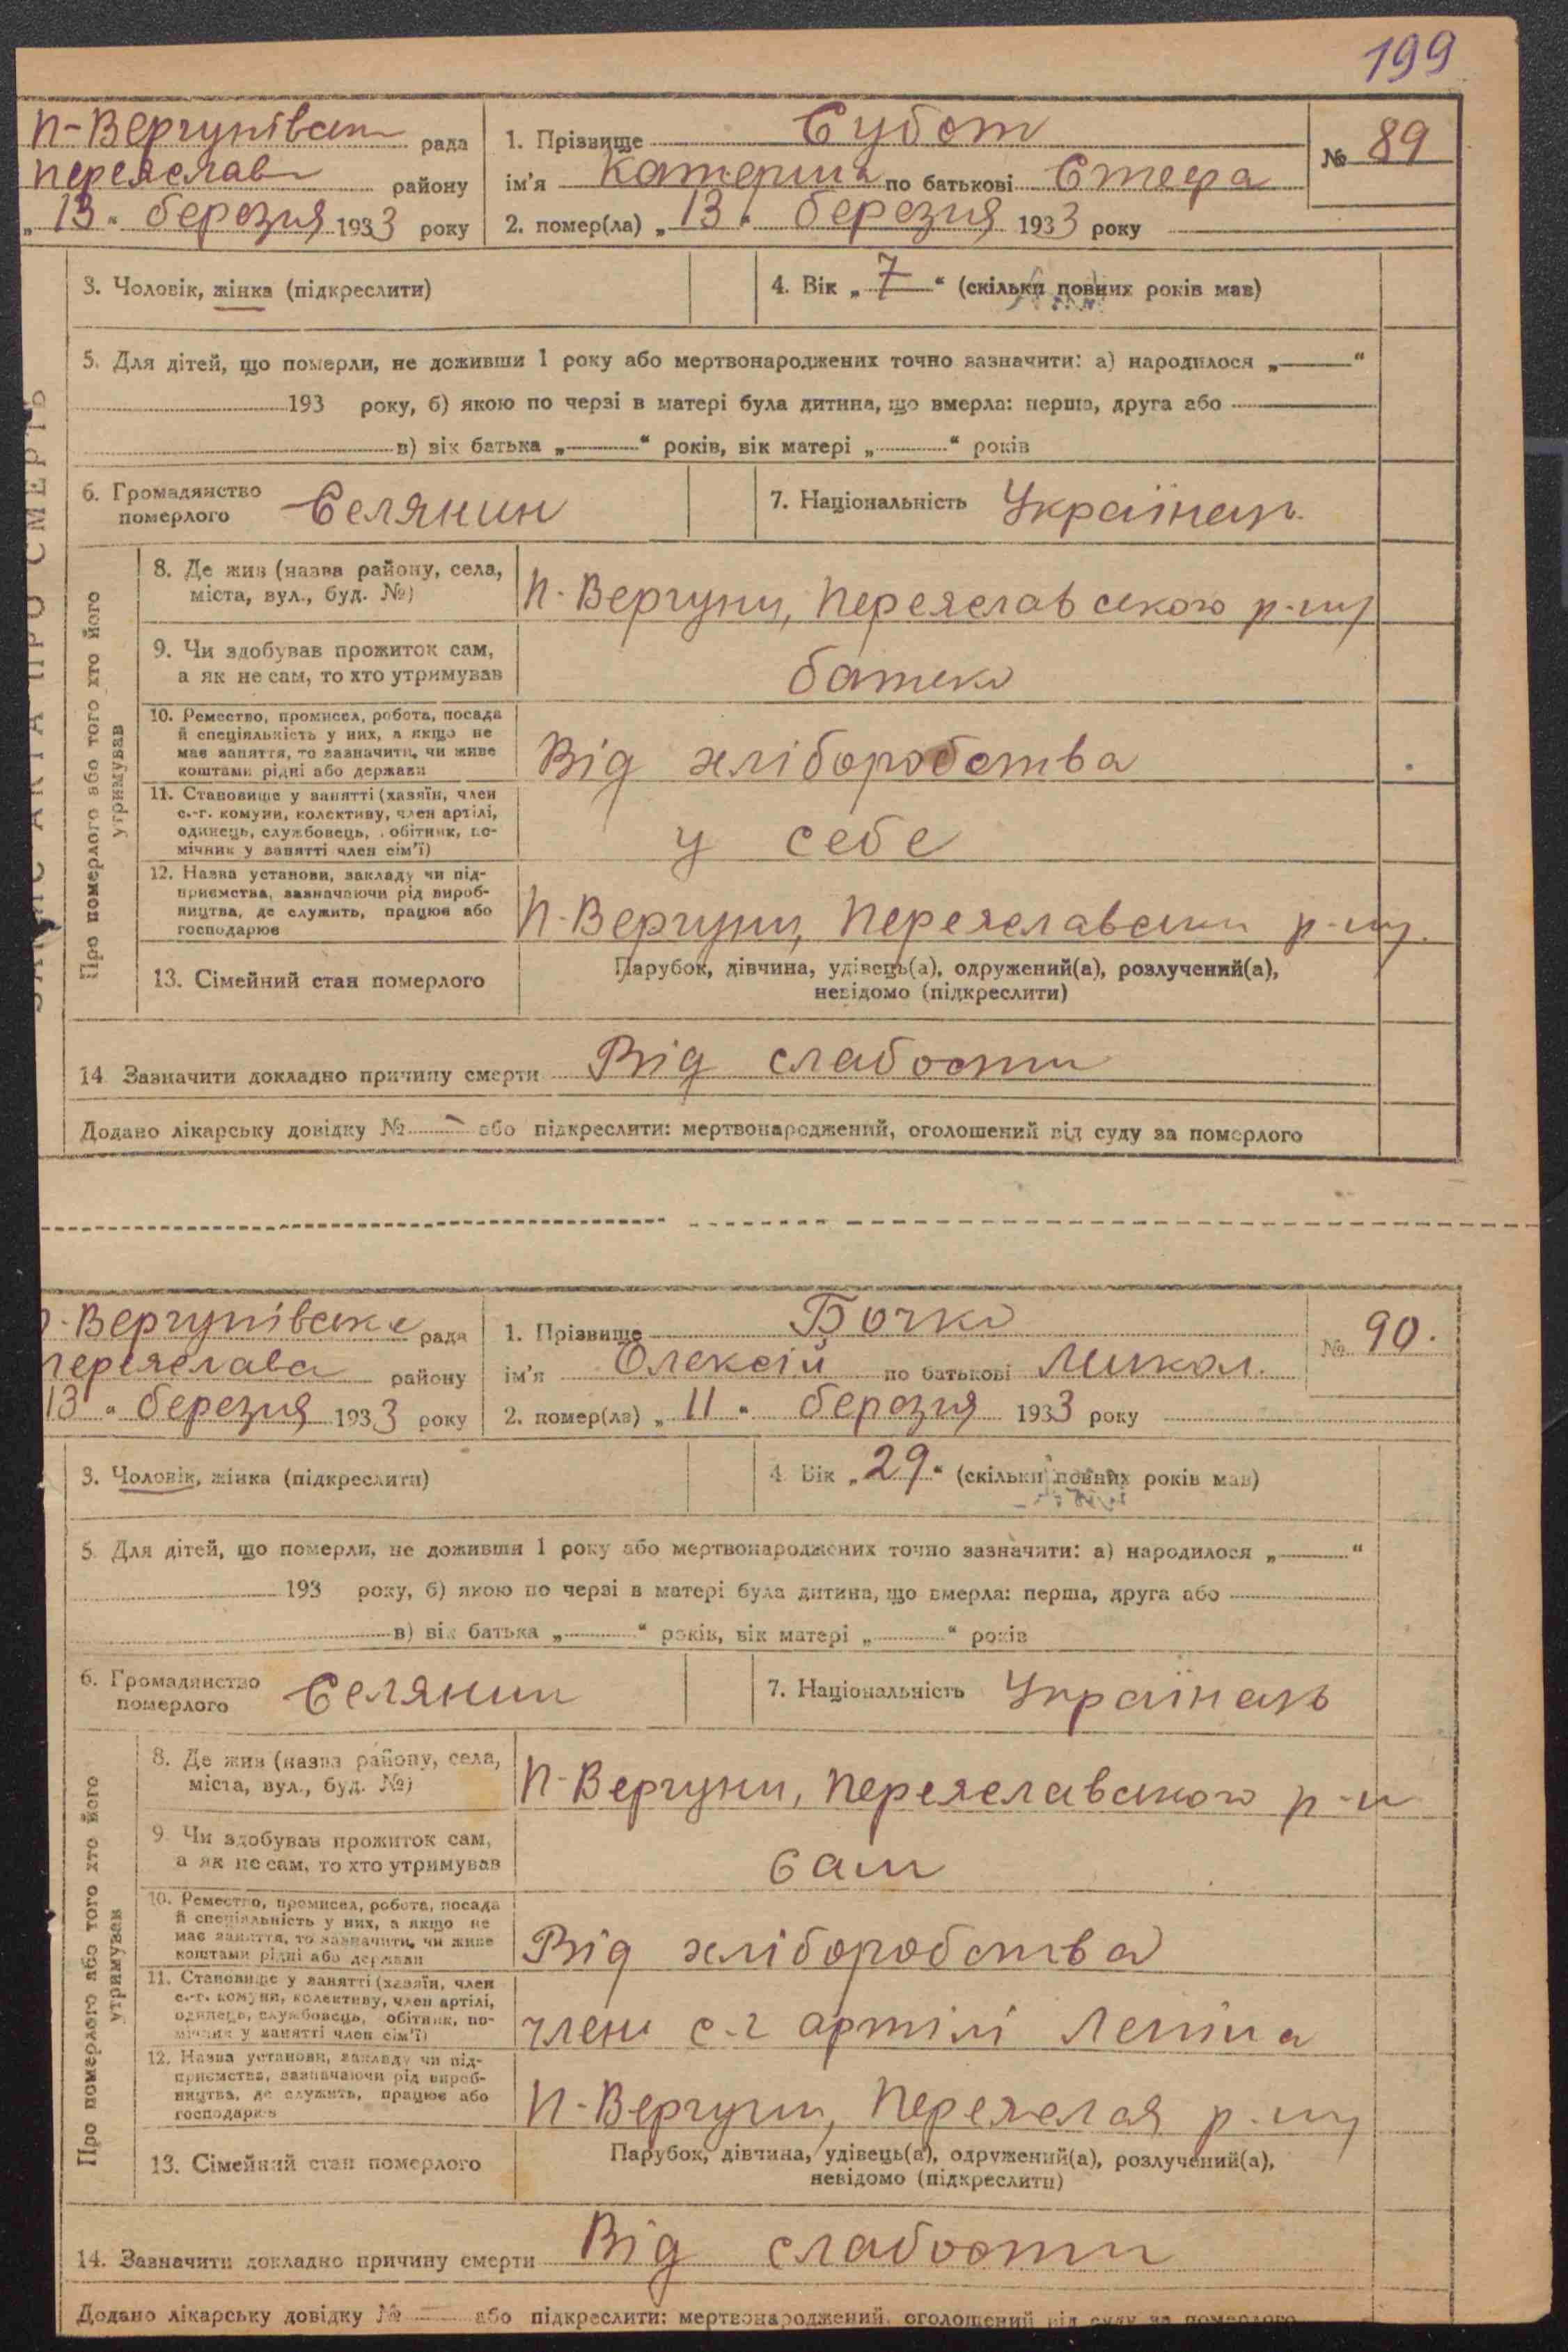 199
П-Вергунівськ рада
Переяслав району
„13" березня 1933 року
1. Прізвище Субот
ім'я Катерина по батькові Стефа
2. помер(ла) „13" березня 1933 року
№ 89
3. Чоловік, жінка (підкреслити)
4. Вік „7" (скільки повних років мав)
5. Для дітей, що померли, не доживши 1 року або мертвонароджених точно зазначити: а) народилося „ "
193 року, б) якою по черзі в матері була дитина, що вмерла: перша, друга або
в) вік батька „ " років, вік матері „ " років
6. Громадянство
померлого
Селянин
7. Національність Українец.
Про померлого або того хто його
утримував
8. Де жив (назва району, села,
міста, вул., буд. №)
П-Вергуни, Переяславського р-ну
9. Чи здобував прожиток сам,
а як не сам, то хто утримував
батько
10. Ремество, промисел, робота, посада
й спеціяльність у них, а якщо не
має заняття, то зазначити, чи живе
коштами рідні або держави
Від хліборобства
11. Становище у занятті (хазяїн, член
с.-г. комуни, колективу, член артілі,
одинець, службовець, обітник, по-
мічник у занятті член сім'ї)
у себе
12. Назва установи, закладу чи під-
приємства, зазначаючи рід вироб-
ництва, де служить, працює або
господарює
П-Вергуни, Переяславськ р-ну.
13. Сімейний стан померлого
Парубок, дівчина, удівець(а), одружений(а), розлучений(а),
невідомо (підкреслити)
14 Зазначити докладно причину смерти Від слабости
Додано лікарську довідку № або підкреслити: мертвонароджений, оголошений від суду за померлого
-Вергунівська рада
Переяслава району
13" березня 1933 року
1. Прізвище Бочко
ім'я Олексій по батькові Микол.
2. помер(ла) „11" березня 1933 року
№ 90.
3. Чоловік, жінка (підкреслити)
4. Вік „29" (скільки повних років мав)
5. Для дітей, що померли, не доживши 1 року або мертвонароджених точно зазначити: а) народилося „ "
193 року, б) якою по черзі в матері була дитина, що вмерла: перша, друга або
в) вік батька „ " років, вік матері „ " років
6. Громадянство
померлого
Селянин
7. Національність Українець
Про померлого або того хто його
утримував
8. Де жив (назва району, села,
міста, вул., буд. №)
П-Вергуни, Переяславського р-н
9. Чи здобував прожиток сам,
а як не сам, то хто утримував
Сам
10. Ремество, промисел, робота, посада
й спеціяльність у них, а якщо не
має заняття, то зазначити, чи живе
коштами рідні або держави
Від хліборобства
11. Становище у занятті (хазяїн, член
с.-г. комуни, колективу, член артілі,
одинець, службовець, обітник, по-
мічник у занятті член сім'ї)
член с.г артілі Леніна
12. Назва установи, закладу чи під-
приємства, зазначаючи рід вироб-
ництва, де служить, працює або
господарює
П-Вергуни, Переяслав р-ну
13. Сімейний стан померлого
Парубок, дівчина, удівець(а), одружений(а), розлучений(а),
невідомо (підкреслити)
14. Зазначити докладно причину смерти Від слабости
Додано лікарську довідку № або підкреслити: мертвонароджений, оголошений від суду за померлого